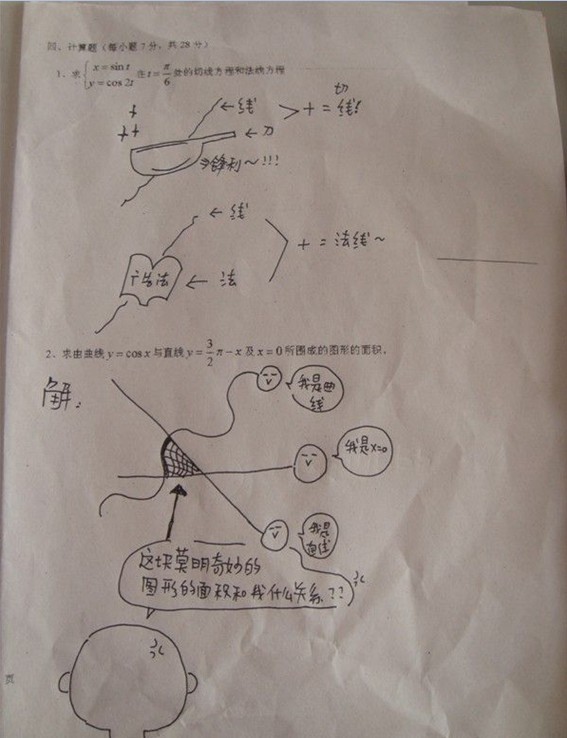 四、计算题（每小题7分，共28分）
1、求{x=sin t y=cos 2t 在 t=π/6 处的切线方程和法线方程
←线
>+=切线!
←刀
⇒锋利～!!!
←线
+=法线～
广告法 ← 法
2、求由曲线 y=cos x 与直线 y=3/2π-x 及 x=0 所围成的图形的面积。
解：
我是曲
线
我是x=0
我是
直线
这块莫明奇妙的
图形的面积和我什么关系??
页